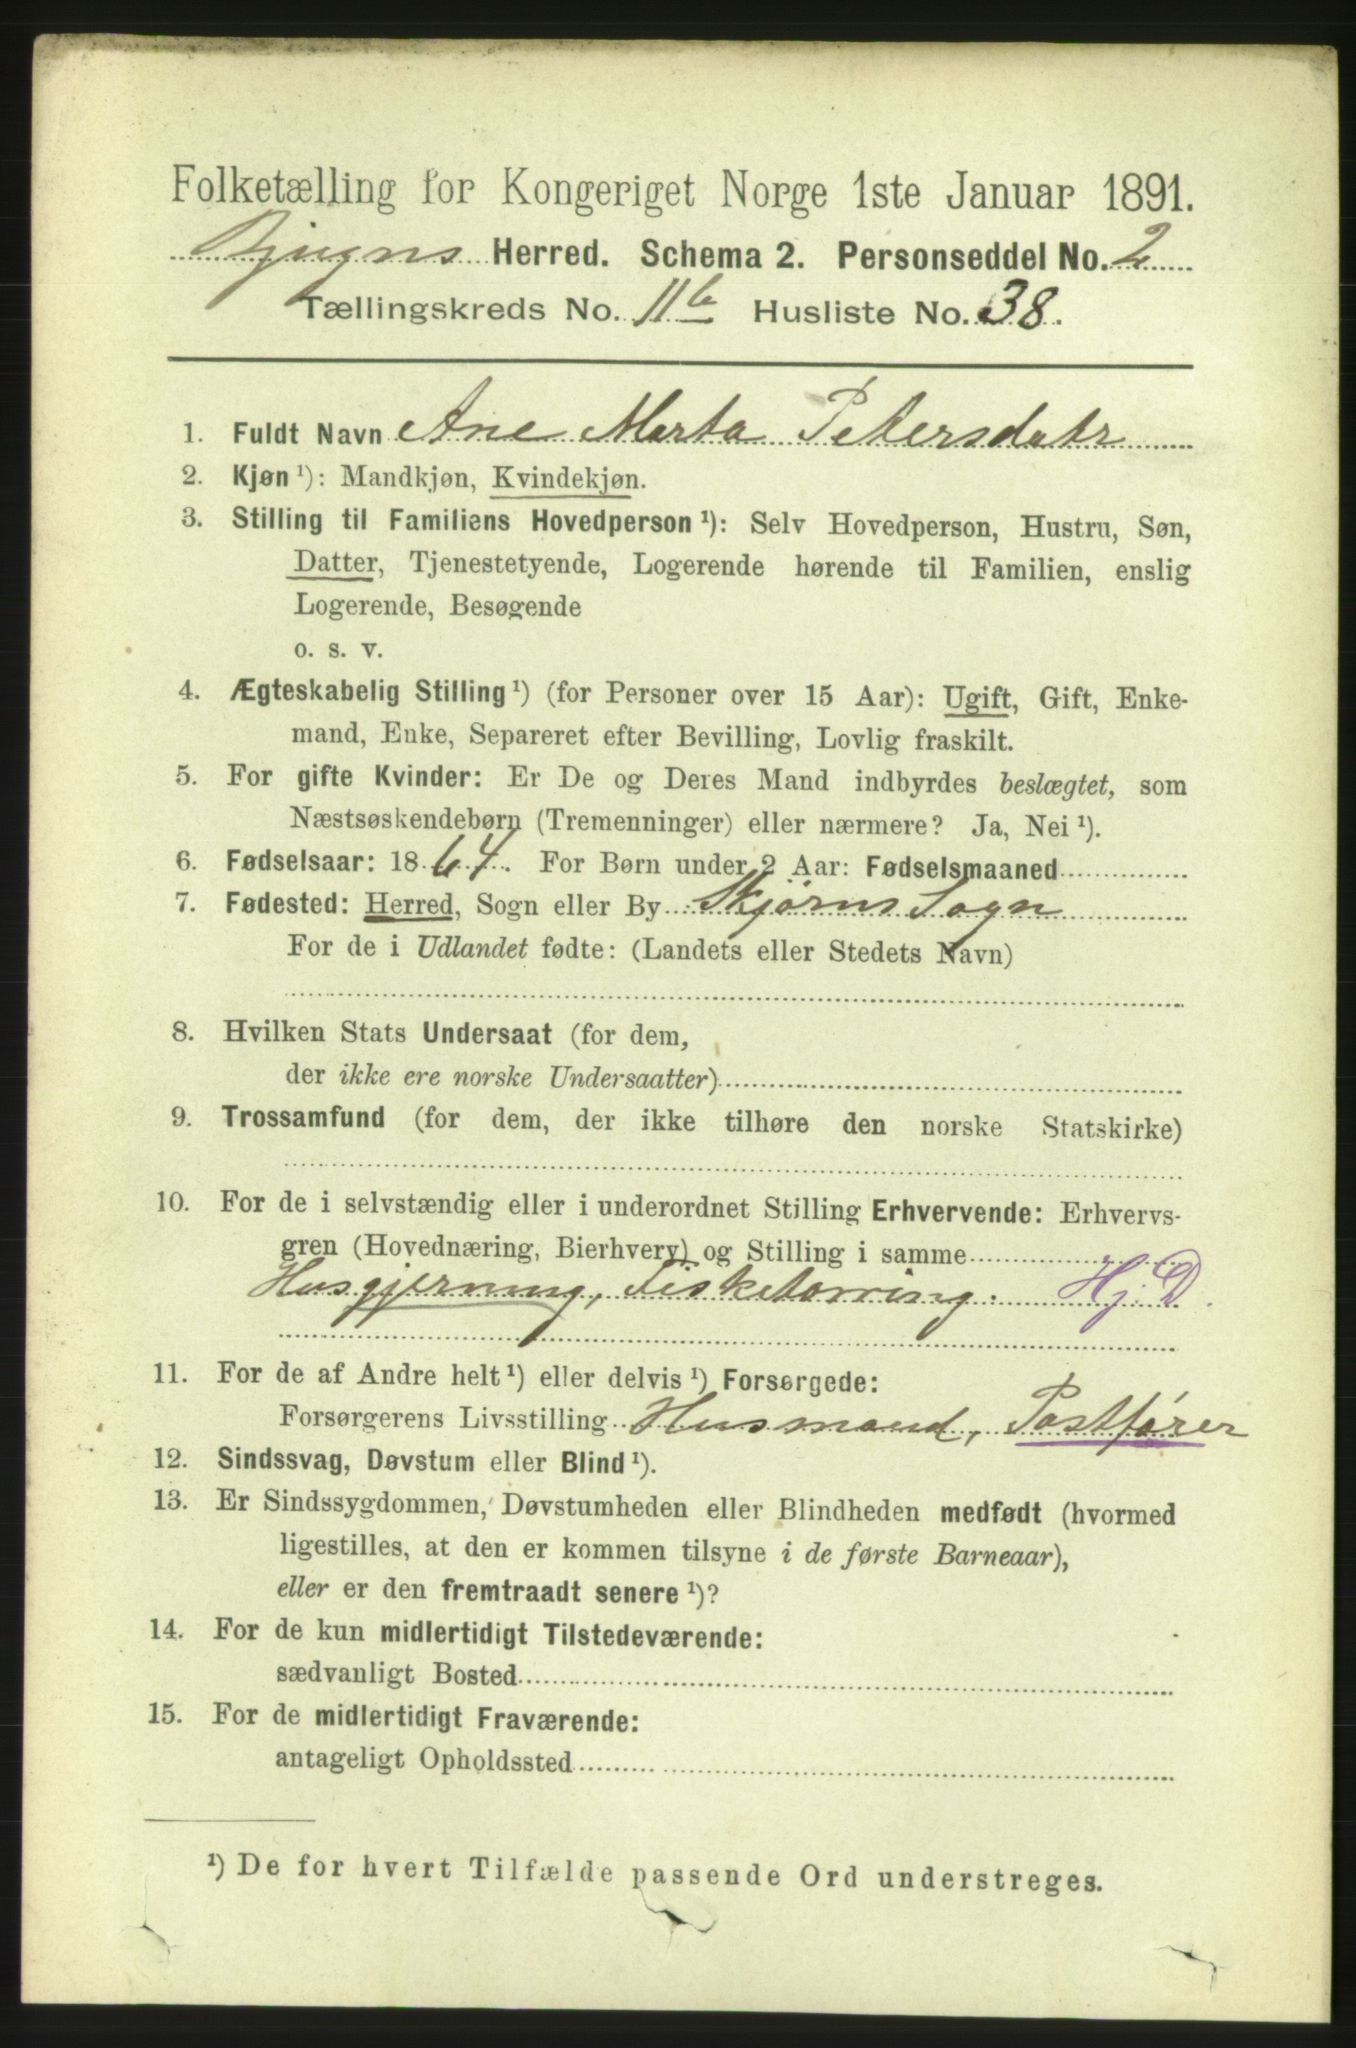 Folketælling for Kongeriget Norge 1ste Januar 1891.
Bjugns Herred. Schema 2. Personseddel No. 2
Tællingskreds No. 11b Husliste No. 38.
1. Fuldt Navn Ane Marta Petersdatr
2. Kjøn ¹): Mandkjøn, Kvindekjøn.
3. Stilling til Familiens Hovedperson ¹): Selv Hovedperson, Hustru, Søn,
Datter, Tjenestetyende, Logerende hørende til Familien, enslig
Logerende, Besøgende
o. s. v.
4. Ægteskabelig Stilling ¹) (for Personer over 15 Aar): Ugift, Gift, Enke-
mand, Enke, Separeret efter Bevilling, Lovlig fraskilt.
5. For gifte Kvinder: Er De og Deres Mand indbyrdes beslægtet, som
Næstsøskendebørn (Tremenninger) eller nærmere? Ja, Nei ¹).
6. Fødselsaar: 1864. For Børn under 2 Aar: Fødselsmaaned
7. Fødested: Herred, Sogn eller By Skjørns Sogn
For de i Udlandet fødte: (Landets eller Stedets Navn)
8. Hvilken Stats Undersaat (for dem,
der ikke ere norske Undersaatter)
9. Trossamfund (for dem, der ikke tilhøre den norske Statskirke)
10. For de i selvstændig eller i underordnet Stilling Erhvervende: Erhvervs-
gren (Hovednæring, Bierhverv) og Stilling i samme
Husgjerning, Fisketørring. Hj. D.
11. For de af Andre helt ¹) eller delvis ¹) Forsørgede:
Forsørgerens Livsstilling Husmand, Postfører
12. Sindssvag, Døvstum eller Blind ¹).
13. Er Sindssygdommen, Døvstumheden eller Blindheden medfødt (hvormed
ligestilles, at den er kommen tilsyne i de første Barneaar),
eller er den fremtraadt senere ¹)?
14. For de kun midlertidigt Tilstedeværende:
sædvanligt Bosted
15. For de midlertidigt Fraværende:
antageligt Opholdssted
¹) De for hvert Tilfælde passende Ord understreges.